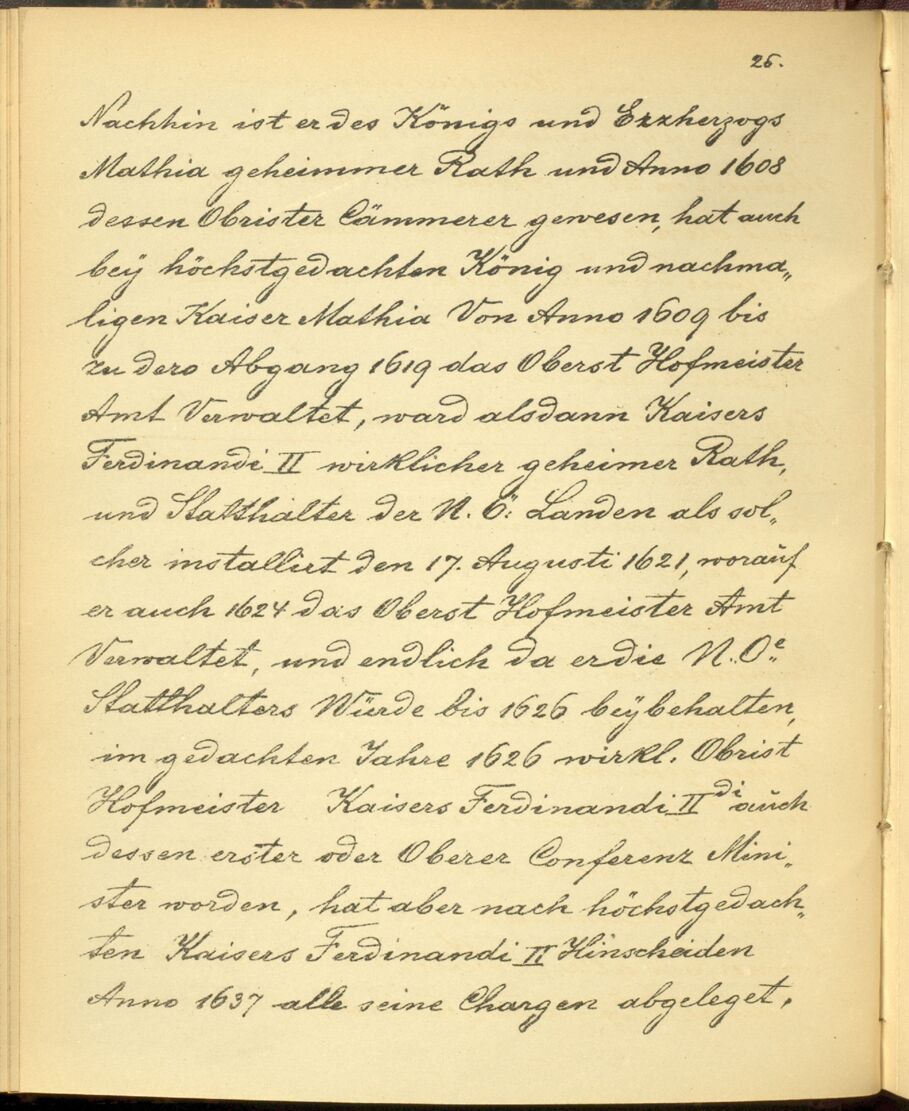 26.
Nachhin ist er des Königs und Erzherzogs
Mathia geheimmer Rath und Anno 1608
dessen Obrister Cämmerer gewesen, hat auch
beÿ höchstgedachten König und nachma„
ligen Kaiser Mathia Von Anno 1609 bis
zu dero Abgang 1619 das Oberst Hofmeister
Amt Verwaltet, ward alsdann Kaisers
Ferdinandi II wirklicher geheimer Rath,
und Statthalter der N. Ö: Landen als sol„
cher installirt den 17. Augusti 1621, worauf
er auch 1624 das Oberst Hofmeister Amt
Verwaltet, und endlich da er die N. Oe.
Statthalters Würde bis 1626 beÿbehalten,
im gedachten Jahre 1626 wirkl. Obrist
Hofmeister Kaisers Ferdinandi II di auch
dessen erster oder Oberer Conferenz Mini„
ster worden, hat aber nach höchstgedach„
ten Kaisers Ferdinandi II Hinscheiden
Anno 1637 alle seine Chargen abgeleget,